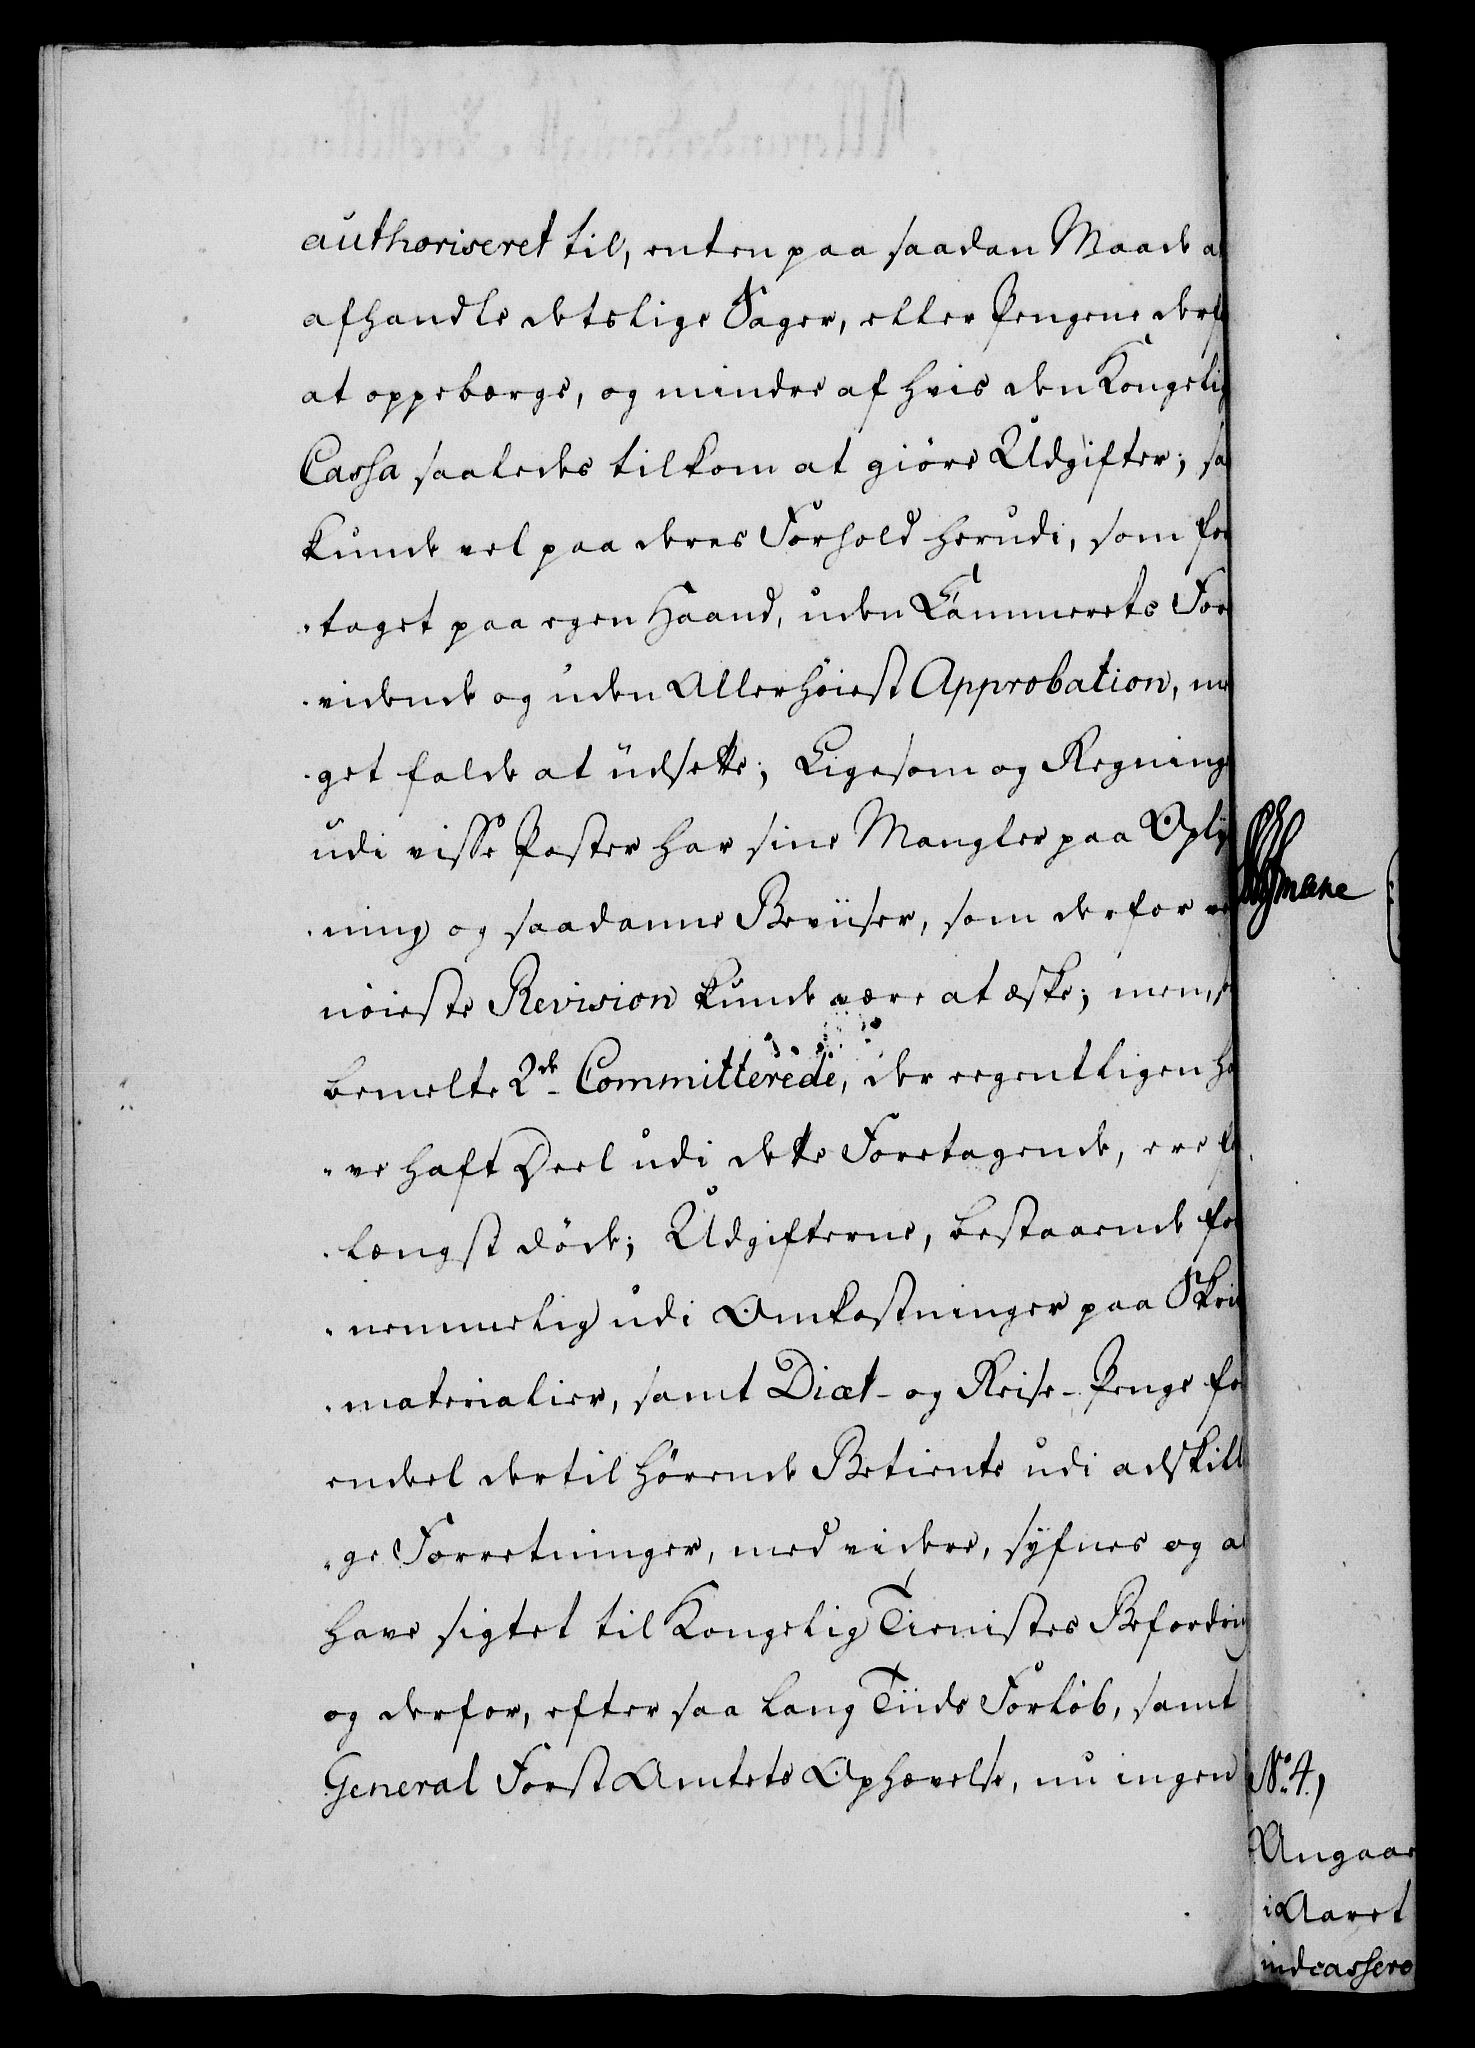 authoriseret til, enten paa saadan Maade a
afhandle detslige Sager, eller Pengene derf
at oppebærge, og mindre af hvis den Kongelig
Cassa saaledes tilkom at giöre Udgifter; sa
kunde vel paa deres Forhold herudi, som for
-taget paa egen Haand, uden Kammerets For
-vidende og uden Allerhöiest Approbation, me
-get falde at udsette; Ligesom og Regning
udi visse Poster har sine Mangler paa Oply
-ning og saadanne Beviiser, som derfor ve
nöieste Revision kunde være at æske; men,
bemelte 2de Committerede, der egentligen ha
-ve haft Deel udi dette Foretagende, ere f
-længst döde; Udgifterne, bestaaende for
-nemmelig udi Omkostninger paa Skri
-materialier, samt Diæt- og Reise-Penge for
endeel dertil hörende Betiente udi adskill
-ge Forretninger, med videre, syfnes og a
have sigtet til Kongelig Tienistes Befordring
og derfor, efter saa lang Tiids Forlöb, samt
General Forst Amtets Ophævelse, nu ingen
No. 4.)
Angaae
i Aaret
indcassere